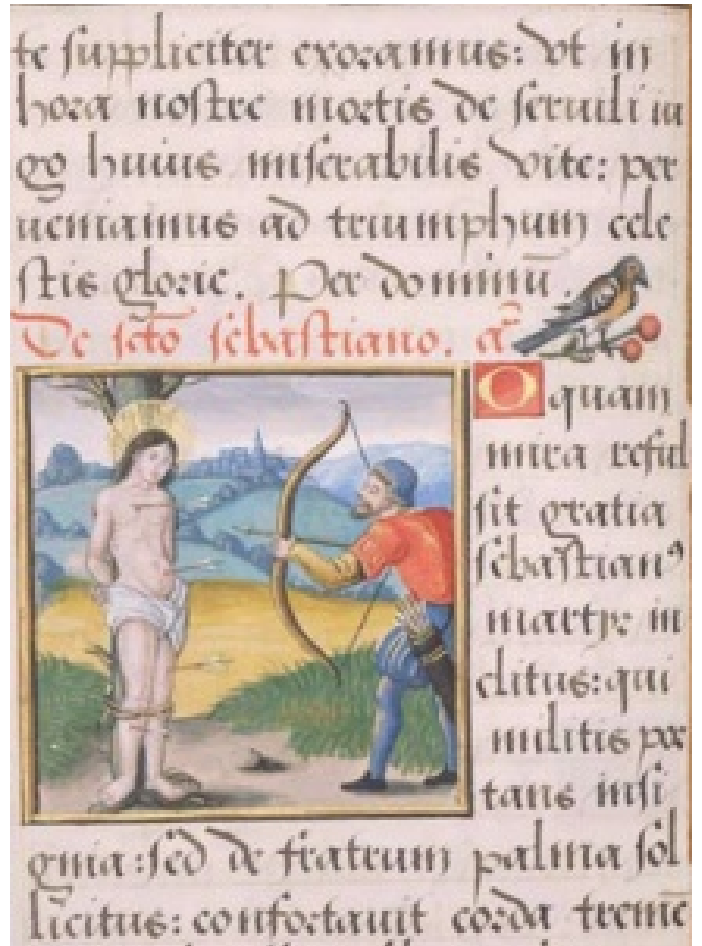 te suppliciter exoramus: vt in
hora nostre mortis de seruili iu
go huius miserabilis vite: per
ueniamus ad triumphum cele
stis glorie. Per dominū.
De scto sebastiano. añ
O quam
mira reful
sit gratia
sebastianꝰ
martyr in
clitus: qui
militis por
tans insi
gnia: sed de fratrum palma sol
licitus: confortauit corda tremē